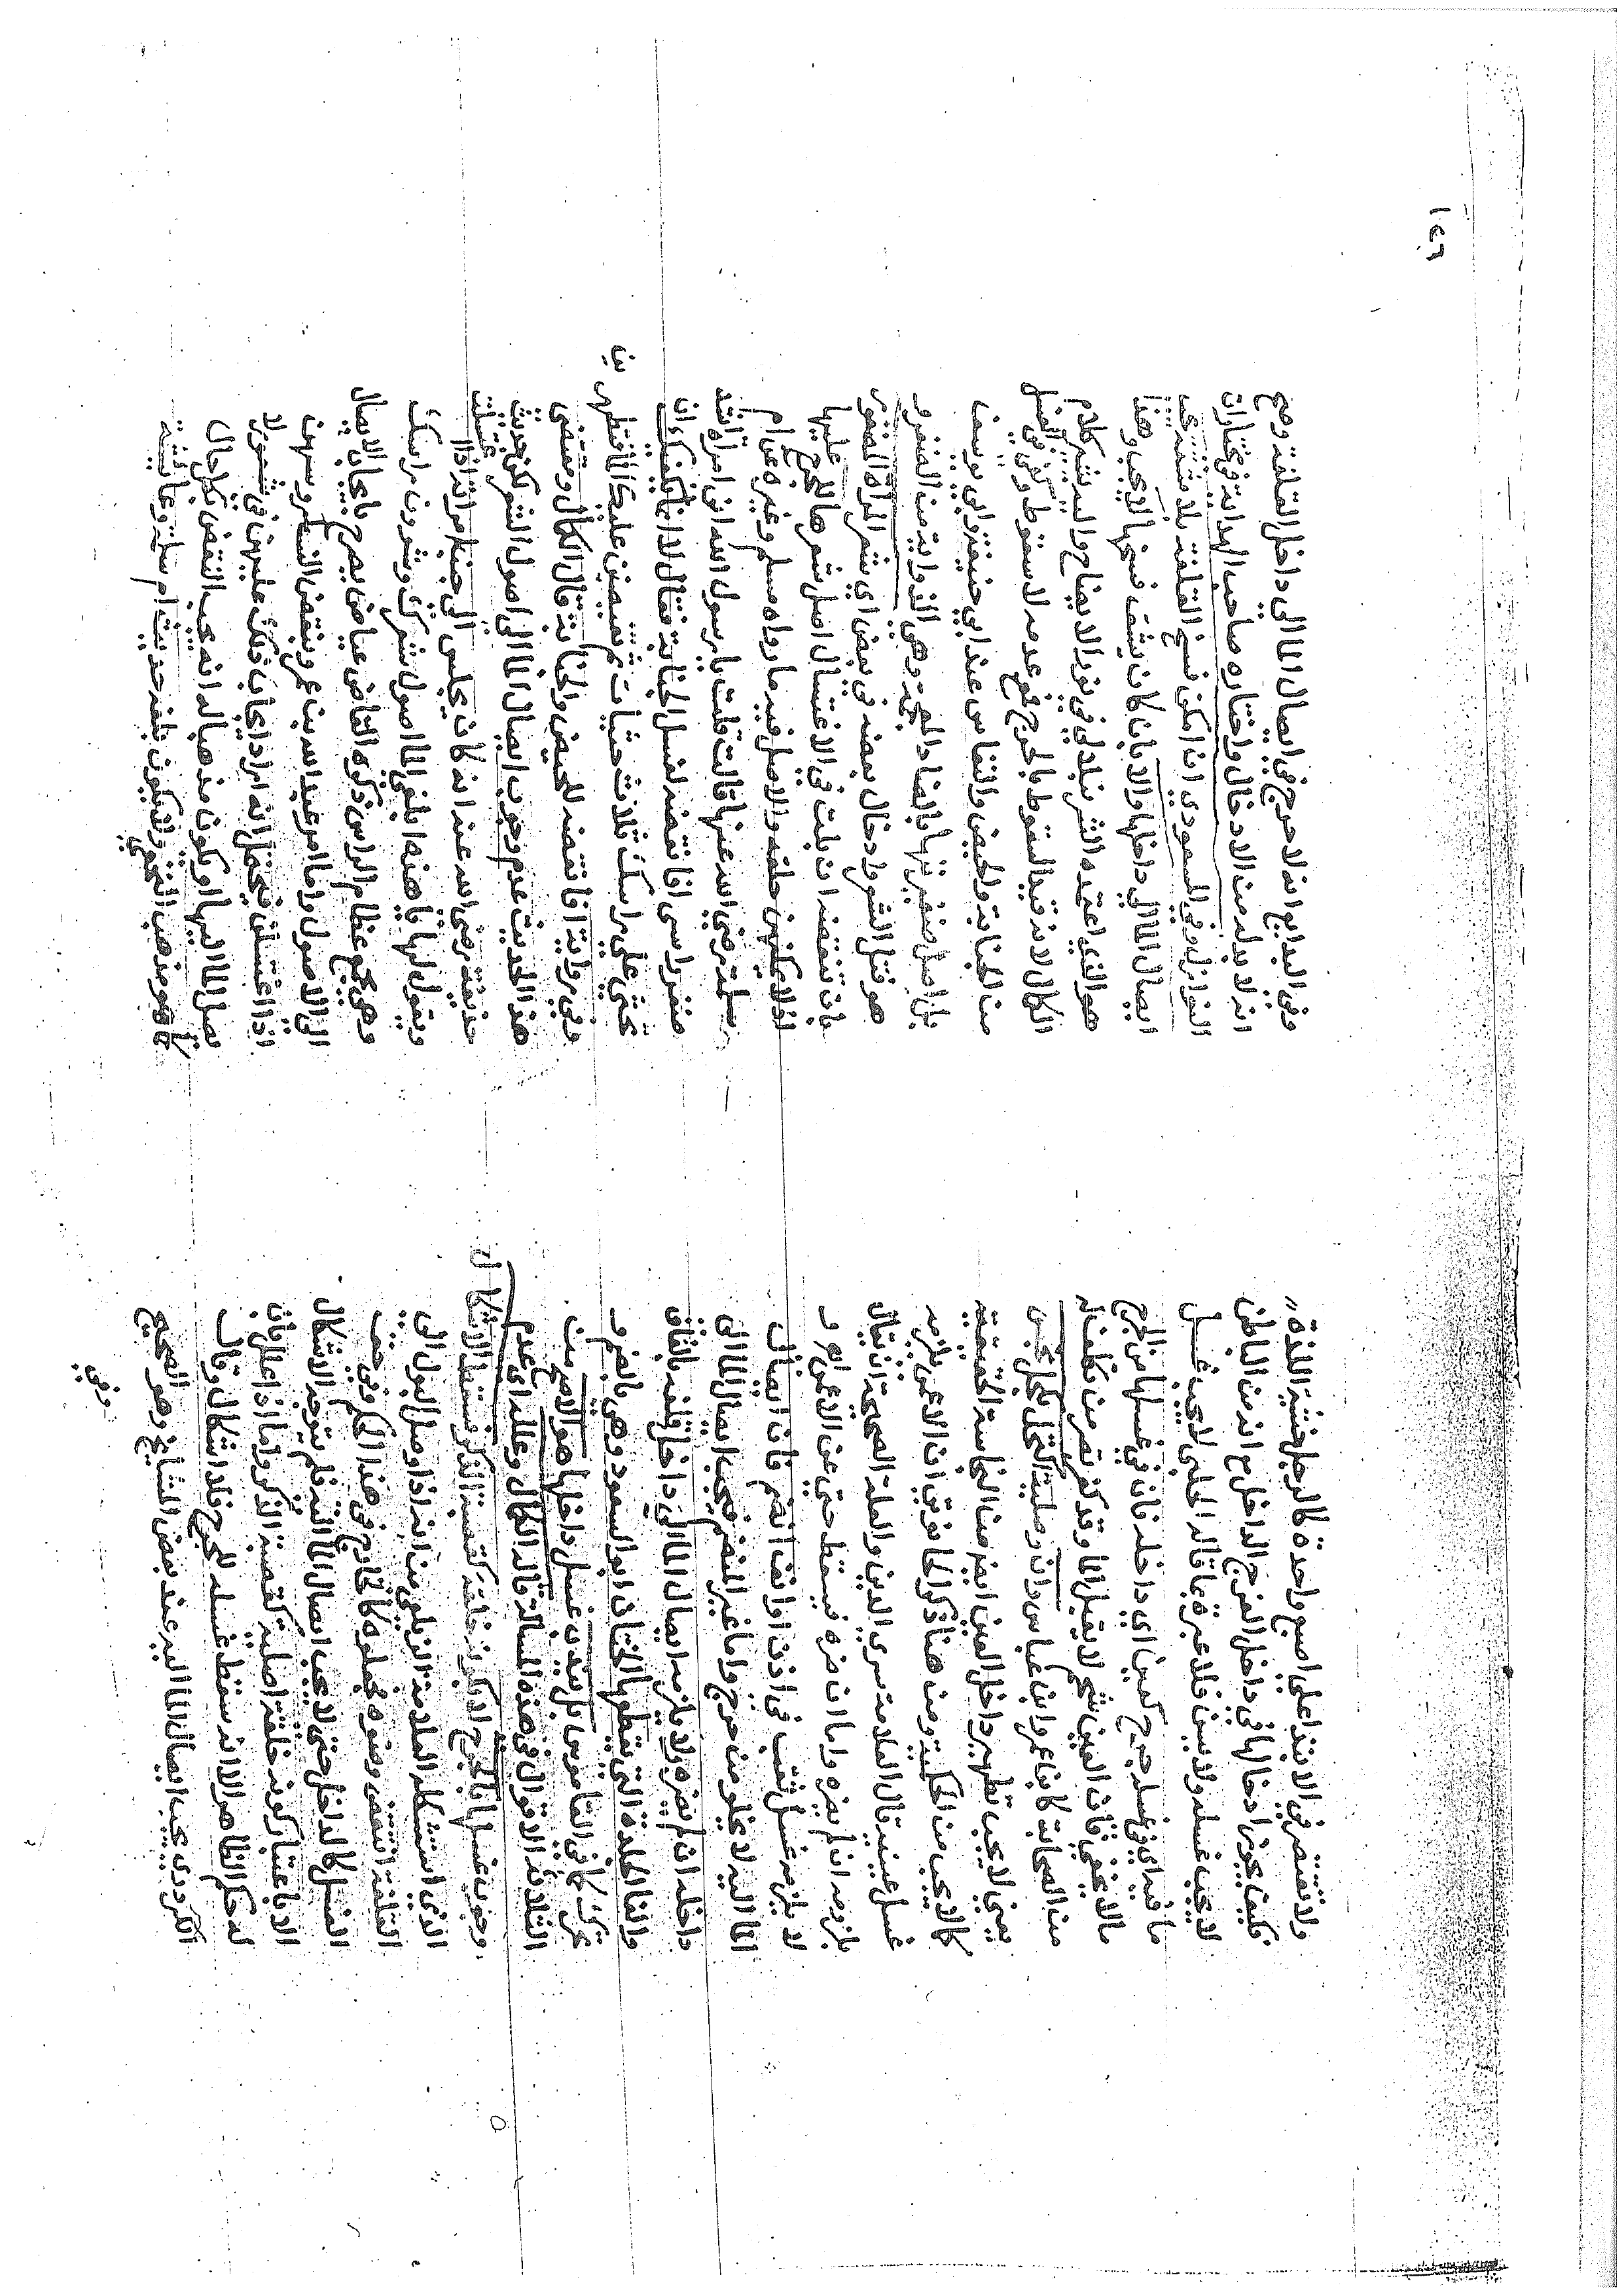 ولا تقتصر في الابتدا على اصبع واحدة كالرجل خشية اللذة
فكيف يجوز ادخالها في داخل الفرج الداخل مع انه من الباطن
لا يجب غسله ولا يسن فلا عبرة بما قاله الحلبي لا يجب غسل
ما فيه اي في غسله حرج كعين اي داخله فان في غسلها من الحرج
ما لا يخفى فان العين شحم لا يقبل الما وقد كف بصر من تكلف له
من الصحابة كابن عمر وابن عباس وان وصلية اكتحل بكحل نجس
يعني لا يجب تطهير داخل العين ايضا من النجاسة الحقيقية
كما لا يجب من الحكمية ومن هنا ذكر الحانوتي ان الاعمى يلزمه
غسل عينيه قال العلامة سري الدين والعلة الصحيحة ان يقال
يلزمه ان لم يضره واما ان ضره فيسقط حتى عن الاعمى و
لا يلزمه غسل ثقب في اذن او انف انضم فان ايصال
الما اليه لا يخلو من حرج واما غير المنضم فيجب ايصال الما الى
داخله ان لم يضره ولا يلزمه ايصال الما الى داخل قلفة بالقاف
والفا الجلدة التي يقطعها الختان ابو السعود وهي بالضم و
تحرك كما في القاموس بل يندب غسل داخلها هو الاصح من
الثلاثة الاقوال في هذه المسالة قاله الكمال وعلله اي عدم
وجوب غسلها بالحرج لا بكونه خلقة كقصبة الذكر فسقط الاشكال
الذي استشكله العلامة الزيلعي من انه اذا وصل البول الى
القلفة انتقض وضوه فجعلوه كالخارج في هذا الحكم وفي حق
الغسل كالداخل حتى لا يجب ايصال الما اليه فلم يتوجه الاشكال
الا باعتبار كونه خلقة اصلية كقصبة الذكر واما اذا علل بان
له حكم الظاهر الا انه سقط غسله للحرج فلا اشكال وقال
الكردري يجب ايصال الما اليه عند بعض المشايخ وهو الصحيح
وفي
١٤٦
وفي البدايع انه لا حرج في ايصال الما الى داخل القلفة وصح
انه لا بد له من الادخال واختاره صاحب الهداية في مختارات
النوازل وفي المسعودي ان امكن فسخ القلفة بلا مشقة يجب
ايصال الما الى داخلها والا بان كان يشق فسخها لا يجب وهذا
هو الذي اعتمده الشرنبلالي في نور الايضاح كلام
الكمال لانه قيد السقوط بالحرج فمع عدمه لا سقوط وكفى في الغسل
من الجنابة والحيض والنفاس عند ابي حنيفة وابي يوسف
بل اصل ضفيرتها بالضاد المعجمة وهي الذوابة من الضفر و
هو فتل الشعر وادخال بعضه في بعض اي شعر المراة المضفور
بان تنقضه ان بلت في الاغتسال اصل شعرها للحرج عليها
اذ لا يمكنهن حلقه والاصل فيه ما رواه مسلم وغيره عن ام
سلمة رضي الله عنها قالت قلت يا رسول الله اني امراة اشد
ضفر راسي افانقضه لغسل الجنابة فقال لا انما يكفيك ان
تحثي على راسك ثلاث حثيات ثم تفيضين عليك الما فتطهرين
وفي رواية افانقضه للحيض والجنابة قال الكمال ومقتضى
هذا الحديث عدم وجوب ايصال الما الى اصول الشعر لكن حديث
حذيفة رضي الله عنه انه كان يجلس الى جنب امراته اذا اغتسلت
ويقول لها يا هذه ابلغي الما اصول شعرك وشون راسك
وهي مجمع عظام الراس ذكره القاضي عياض يصرح بايجاب الايصال
الى الاصول واما امر عبد الله بن عمر بنقض النساء روسهن
اذا اغتسلن فيحتمل انه اراد ايجاب ذلك عليهن في شعور لا
يصل الما اليها او يكون مذهبا له انه يجب النقض بكل حال
كما هو مذهب النخعي ولا يكون بلغه حديث ام سلمة وعائشة